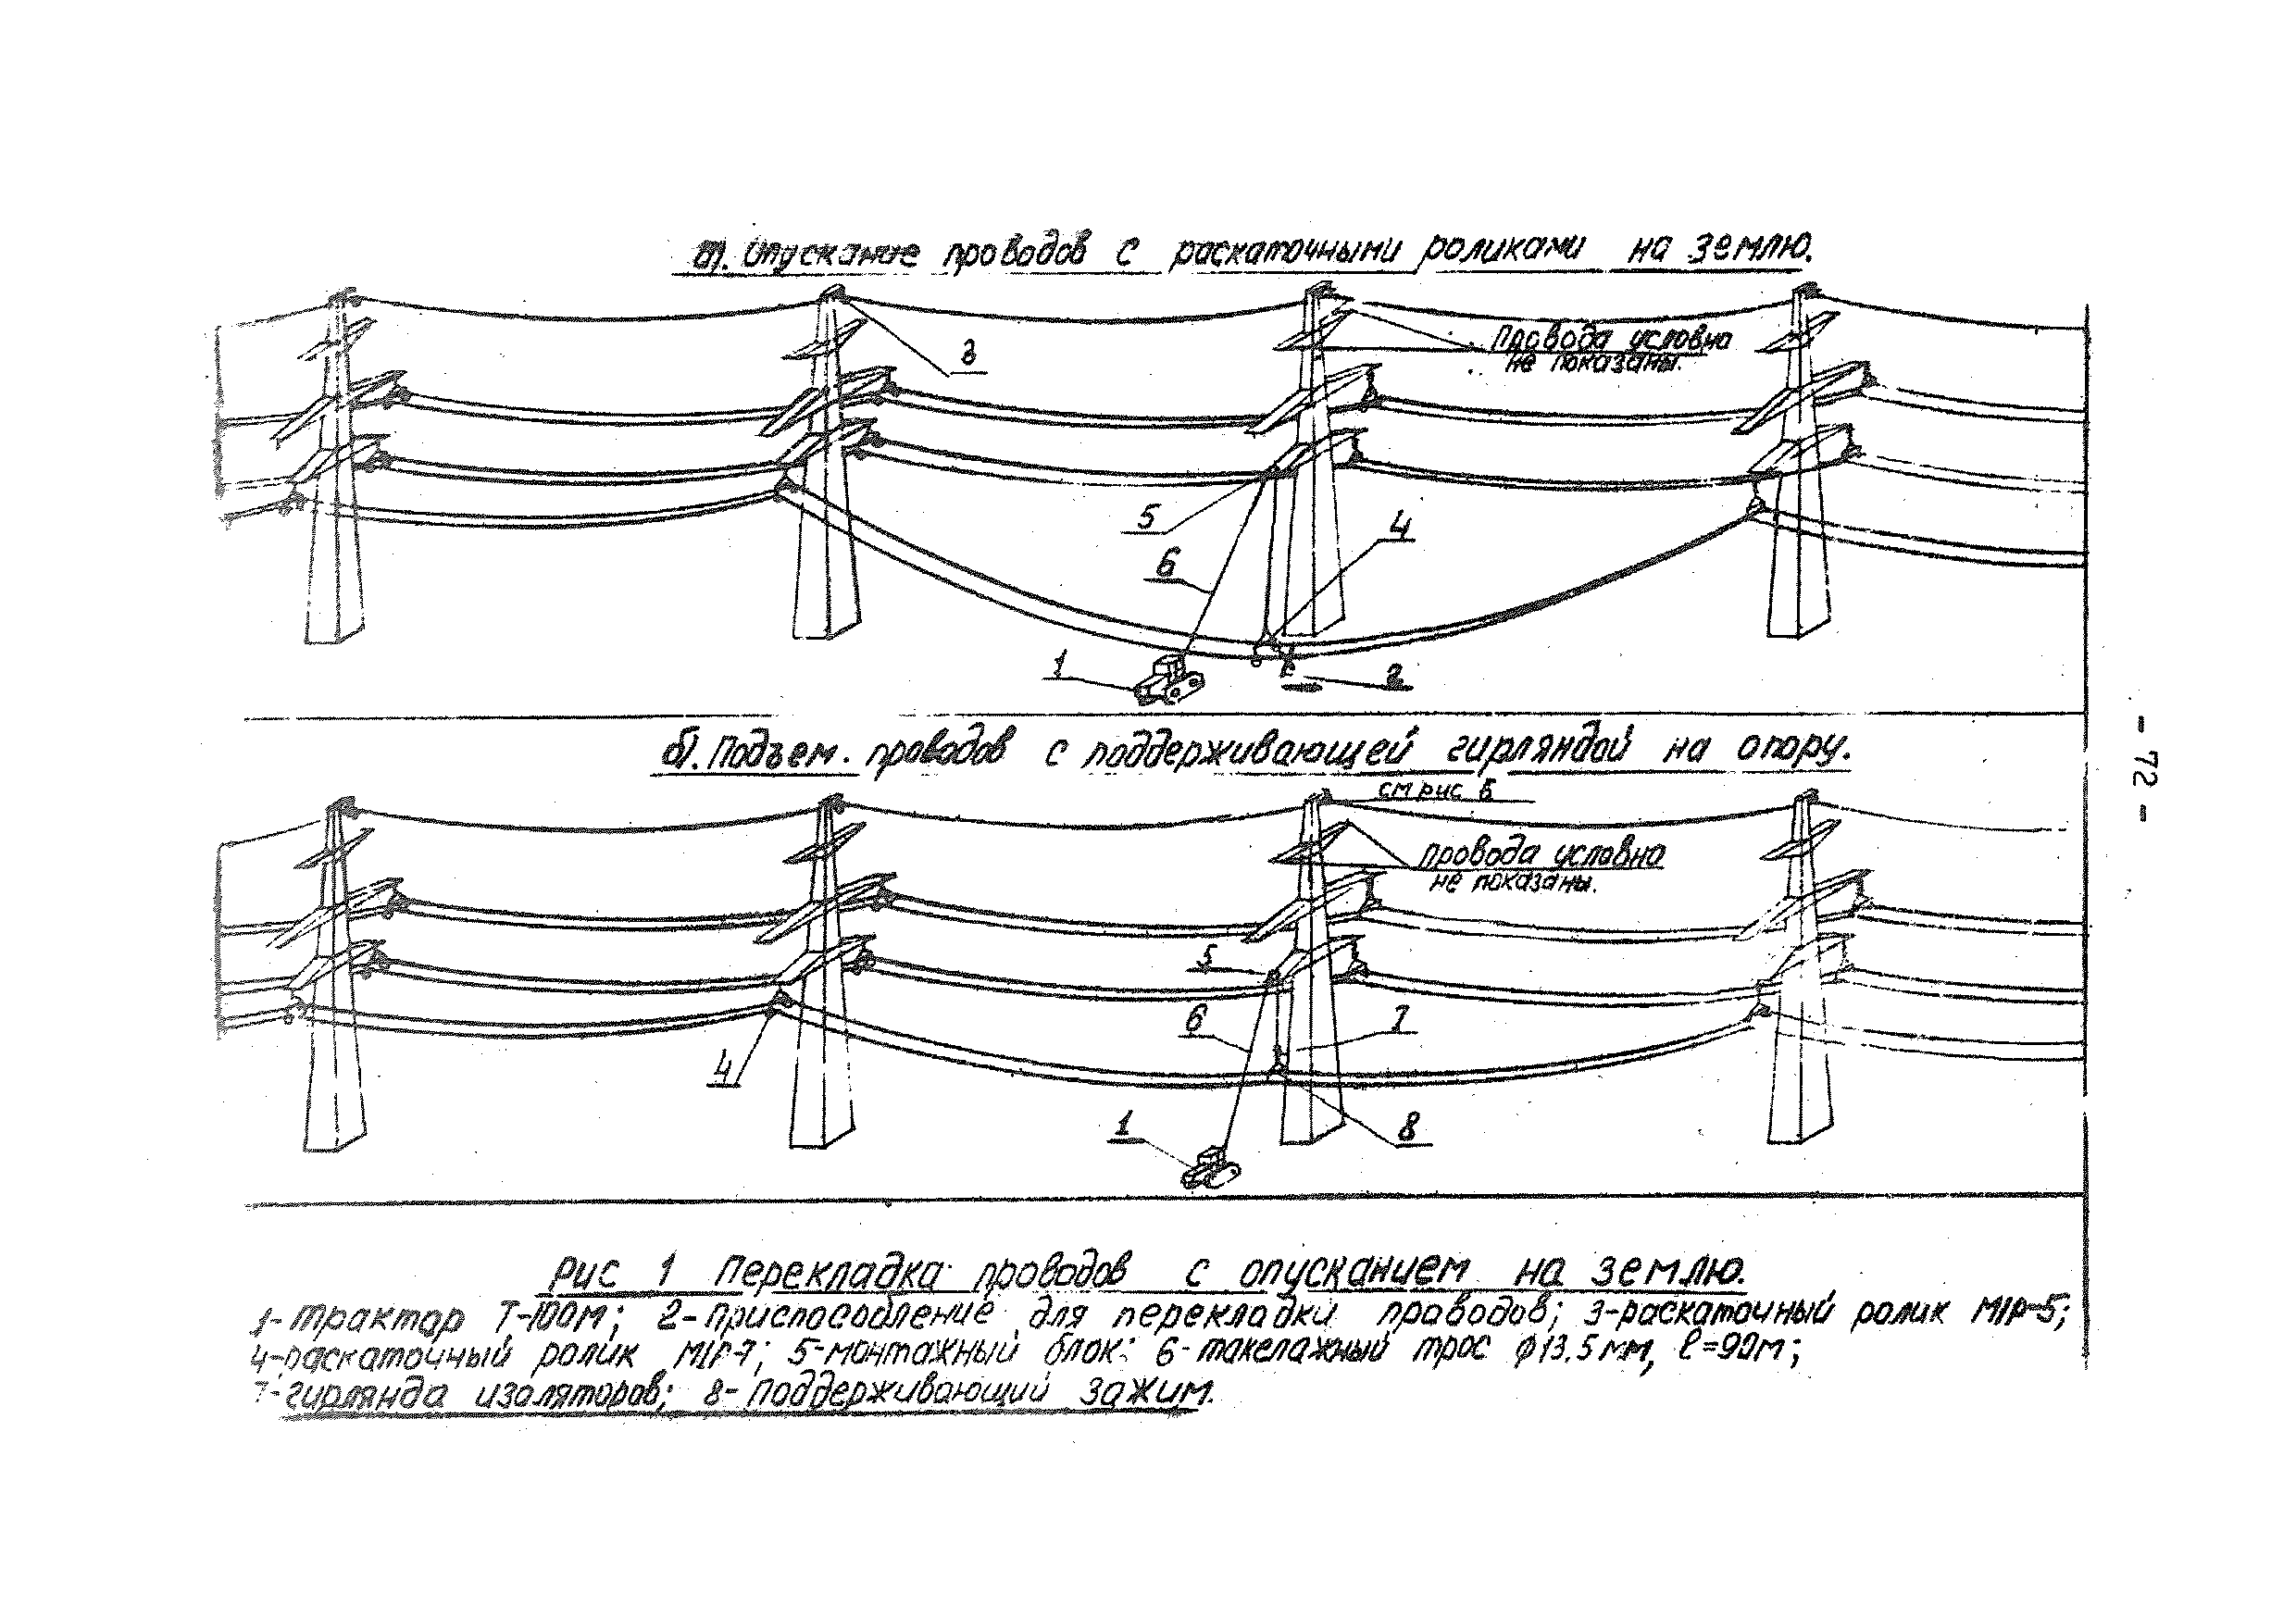 а). Опускание проводов с раскаточными роликами на землю.
3
Провода условно
не показаны.
5
4
6
1
2
б). Подъем. проводов с поддерживающей гирляндой на опору.
см рис 5
Провода условно
не показаны.
5
6
7
4
1
8
- 72 -
Рис 1 Перекладка проводов с опусканием на землю.
1-трактор Т-100м; 2-приспособление для перекладки проводов; 3-раскаточный ролик М1Р-5;
4-раскаточный ролик М1Р-7; 5-монтажный блок; 6-такелажный трос ф13.5мм, ℓ=90м;
7-гирлянда изоляторов; 8-поддерживающий зажим.